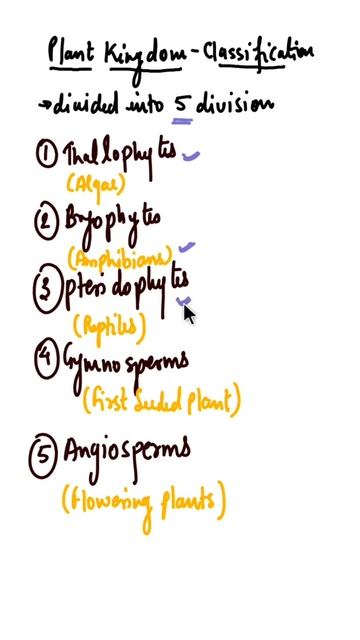 Plant Kingdom - Classification
→ divided into 5 division
① Thallophytes
(Algae)
② Bryophytes
(Amphibians)
③ pteridophytes
(Reptiles)
④ Gymnosperms
(first seeded plant)
⑤ Angiosperms
(flowering plants)